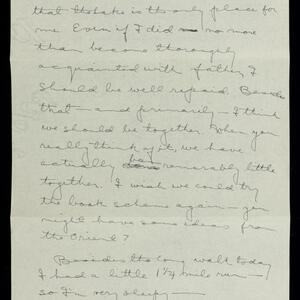 that the lake is the only place for
me. Even if I did no more
than become thorougly
acquainted with father I
should be well repaid. Besides
that — and primarily — I think
we should be together. When you
really think of it, we have
actually been remarkably little
together. I wish we could try
the book scheme again — you
might have some ideas from
the Orient?
Besides the long walk today
I had a little 1 1/4 mile run —
so I'm very sleepy —